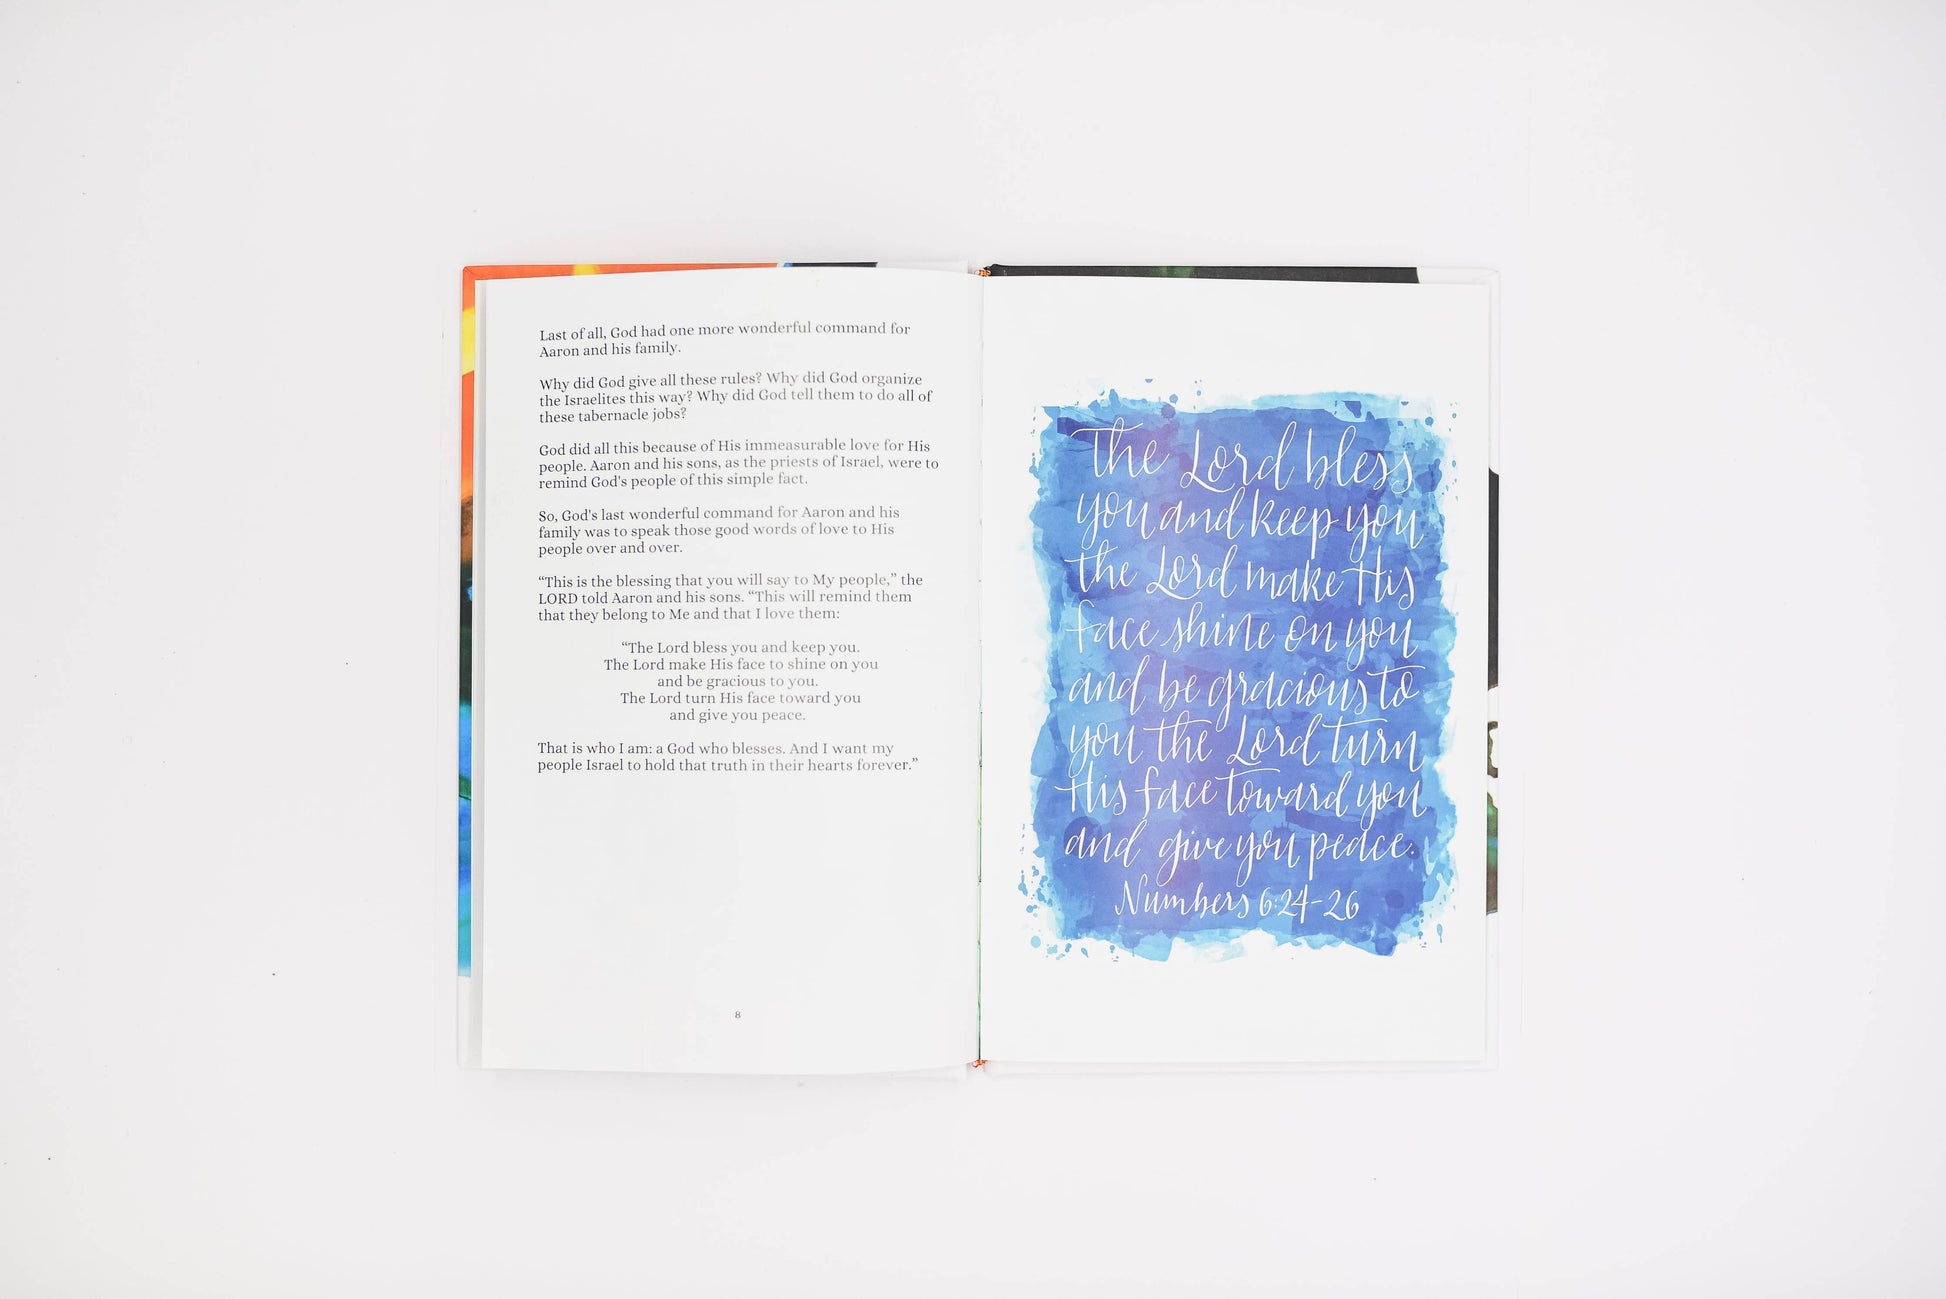 Last of all, God had one more wonderful command for
Aaron and his family.
Why did God give all these rules? Why did God organize
the Israelites this way? Why did God tell them to do all of
these tabernacle jobs?
God did all this because of His immeasurable love for His
people. Aaron and his sons, as the priests of Israel, were to
remind God's people of this simple fact.
So, God's last wonderful command for Aaron and his
family was to speak those good words of love to His
people over and over.
“This is the blessing that you will say to My people,” the
LORD told Aaron and his sons. “This will remind them
that they belong to Me and that I love them:
“The Lord bless you and keep you.
The Lord make His face to shine on you
and be gracious to you.
The Lord turn His face toward you
and give you peace.
That is who I am: a God who blesses. And I want my
people Israel to hold that truth in their hearts forever.”
8
The Lord bless
you and keep you
the Lord make His
face shine on you
and be gracious to
you the Lord turn
His face toward you
and give you peace.
Numbers 6:24-26